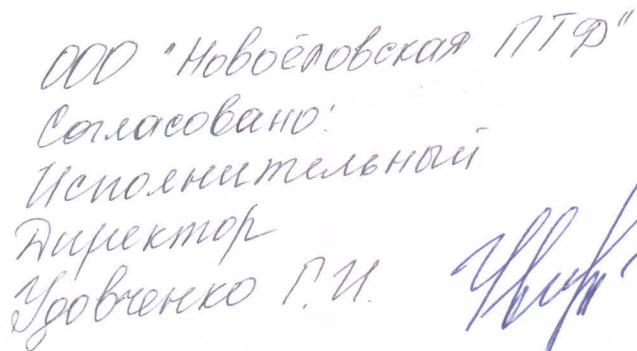 ООО "Новоеловская ПТФ"
Согласовано:
Исполнительный
Директор
Удовченко Г.И.